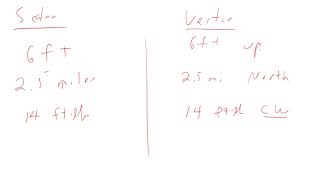 Scalar
Vector
6 ft
6 ft up
2.5 miles
2.5 mi North
14 ft·lb
14 ft·lb CW